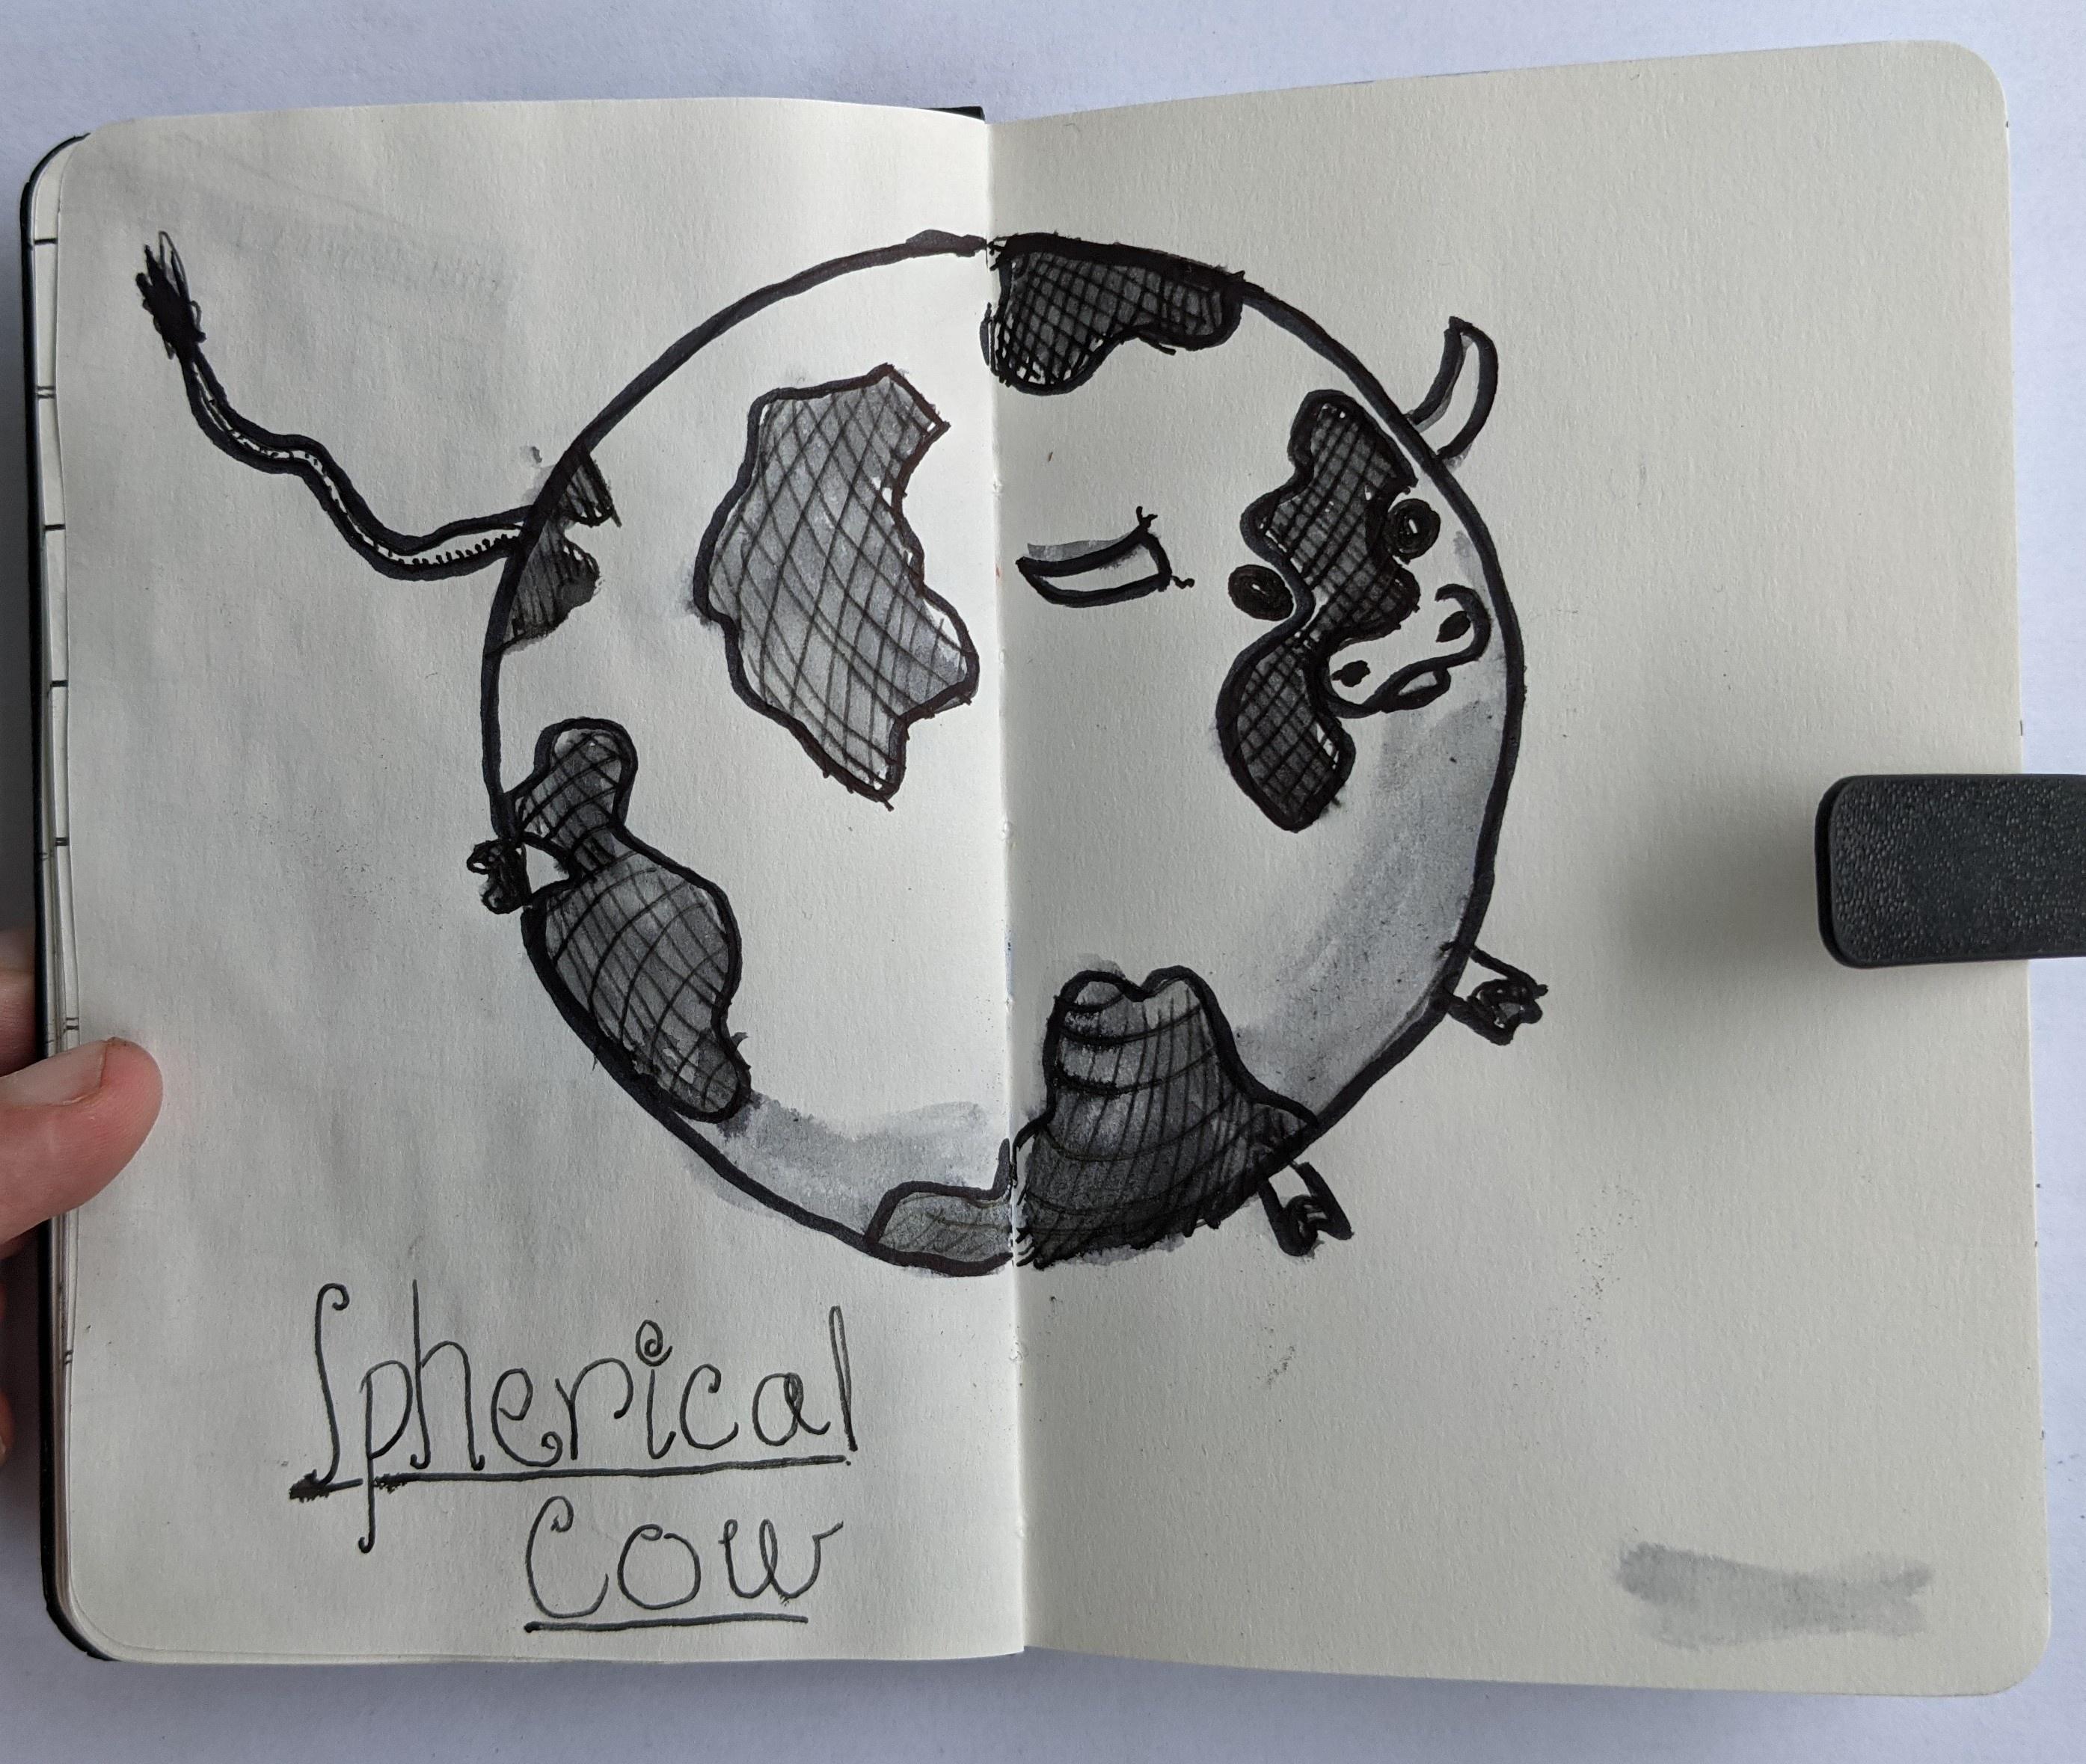 Spherical
Cow